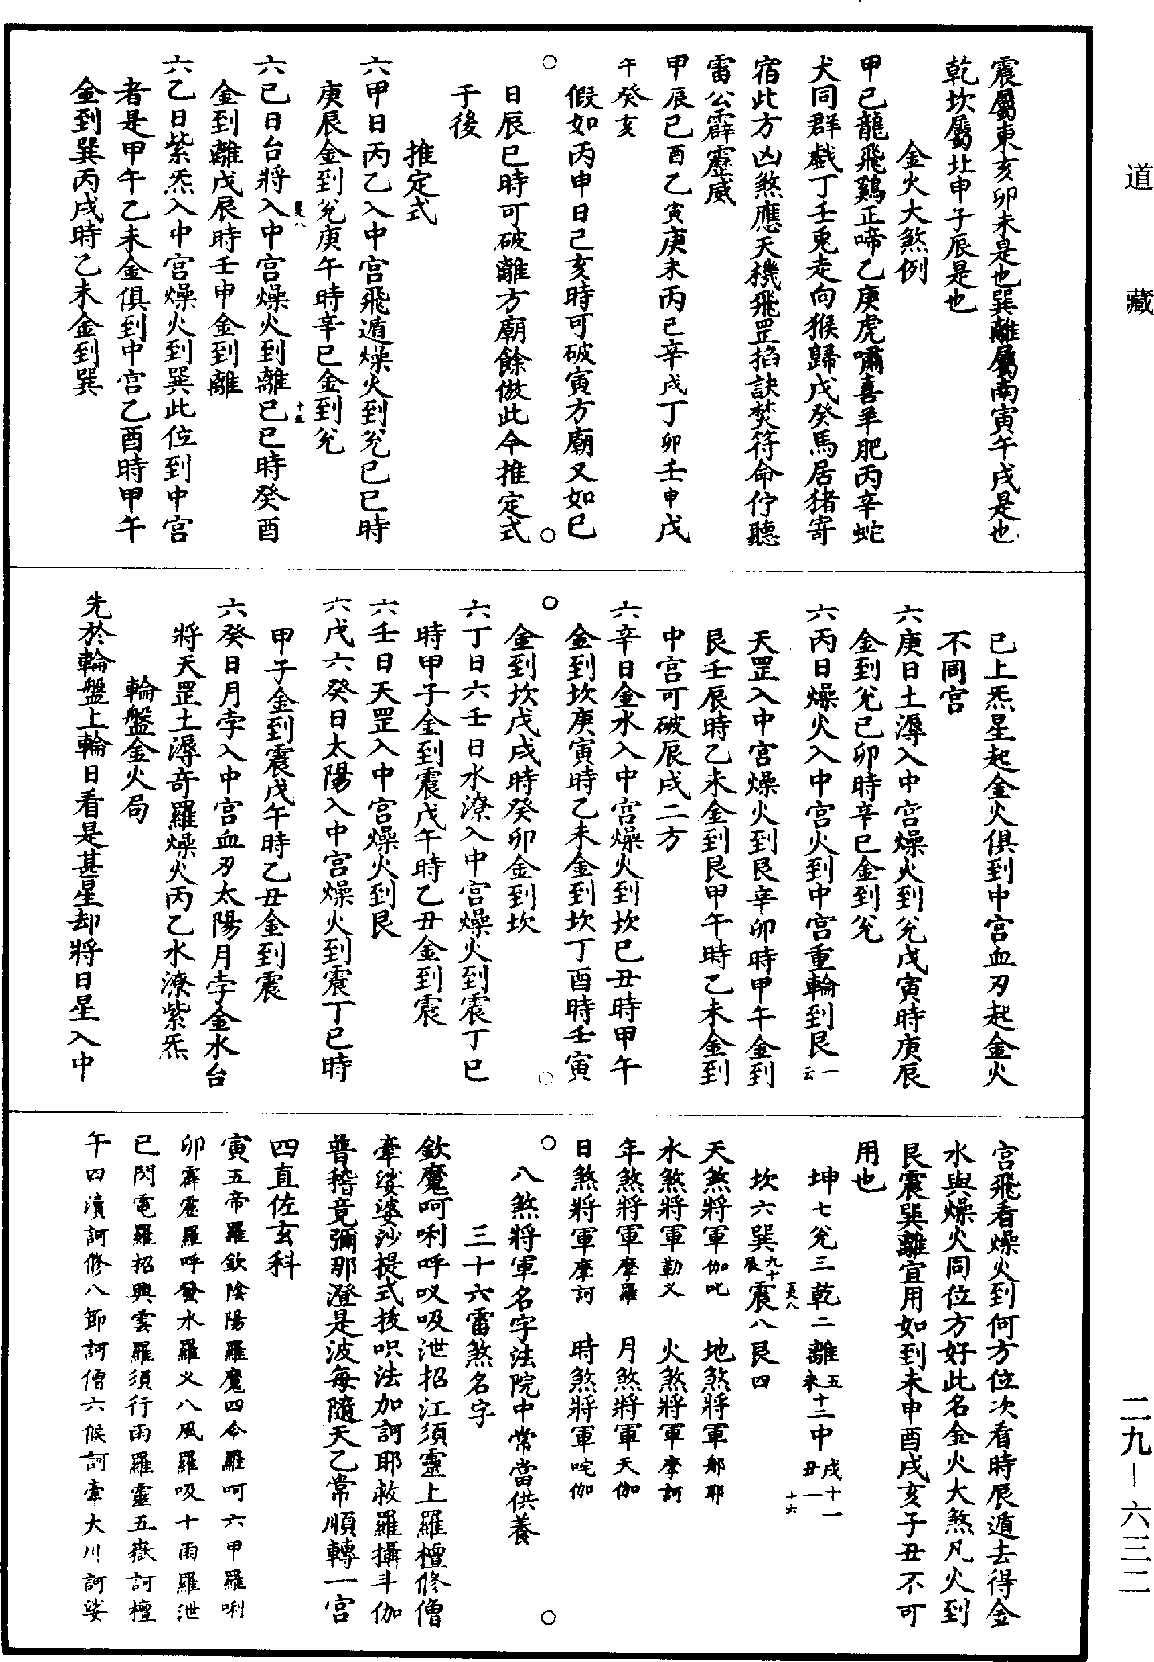 道藏
震屬東亥卯未是也巽離屬南寅午戌是也
乾坎屬北申子辰是也
金火大煞例
甲己龍飛鷄正啼乙庚虎嘯喜羊肥丙辛蛇
犬同群戲丁壬兎走向猴歸戊癸馬居猪寄
宿此方凶煞應天機飛罡掐訣焚符命佇聽
雷公霹靂威
甲辰己酉乙寅庚未丙巳辛戌丁卯壬申戊
午癸亥
假如丙申日己亥時可破寅方廟又如巳
日辰巳時可破離方廟餘倣此今推定式
于後
推定式
六甲日丙乙入中宮飛遁燥火到兊己巳時
庚辰金到兊庚午時辛巳金到兊
六己日台將入中宮燥火到離己巳時癸酉
金到離戊辰時壬申金到離
六乙日紫炁入中宮燥火到巽此位到中宮
者是甲午乙未金俱到中宮乙酉時甲午
金到巽丙戌時乙未金到巽
已上炁星起金火俱到中宮血刃起金火
不同宮
六庚日土潯入中宮燥火到兊戊寅時庚辰
金到兊己卯時辛巳金到兊
六丙日燥火入中宮火到中宮重輪到艮一云
天罡入中宮燥火到艮辛卯時甲午金到
艮壬辰時乙未金到艮甲午時乙未金到
中宮可破辰戌二方
六辛日金水入中宮燥火到坎己丑時甲午
金到坎庚寅時乙未金到坎丁酉時壬寅
金到坎戊戌時癸卯金到坎
六丁日六壬日水潦入中宮燥火到震丁巳
時甲子金到震戊午時乙丑金到震
六壬日天罡入中宮燥火到艮
六戊六癸日太陽入中宮燥火到震丁巳時
甲子金到震戊午時乙丑金到震
六癸日月孛入中宮血刃太陽月孛金水台
將天罡土潯奇羅燥火丙乙水潦紫炁
輪盤金火局
先於輪盤上輪日看是甚星却將日星入中
宮飛看燥火到何方位次看時辰遁去得金
水與燥火同位方好此名金火大煞凡火到
艮震巽離宜用如到未申酉戌亥子丑不可
用也
坤七兊三乾二離五十二中戌十一
坎六巽九十辰震八艮四
天煞將軍伽吒　地煞將軍那耶
水煞將軍勤义　火煞將軍摩訶
年煞將軍摩羅　月煞將軍天伽
日煞將軍摩訶　時煞將軍咤伽
八煞將軍名字法院中常當供養
三十六雷煞名字
欽魔呵唎呼㕛吸泄招江須靈上羅檀修僧
牽娑婆沙提式拔呮法加訶耶赦羅攝斗伽
普稽竟彌那澄是波每隨天乙常順轉一宮
四直佐玄科
寅五帝羅欽陰陽羅魔四令羅呵六甲羅唎
卯霹靂羅呼發水羅义八風羅吸十雨羅泄
巳閃電羅招興雲羅須行雨羅靈五嶽訶檀
午四瀆訶修八節訶僧六候訶牽大川訶娑
二九—六三二